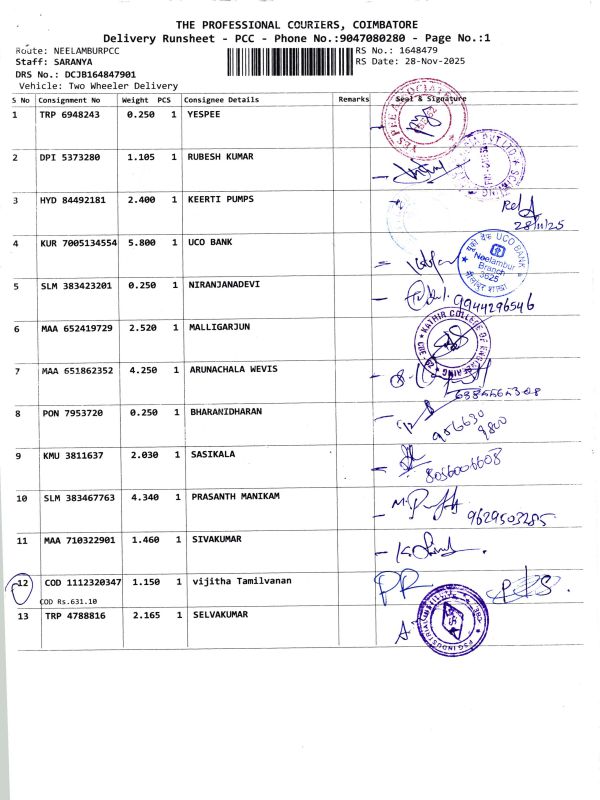 THE PROFESSIONAL COURIERS, COIMBATORE
Delivery Runsheet - PCC - Phone No.:9047080280 - Page No.:1
Route: NEELAMBURPCC RS No.: 1648479
Staff: SARANYA RS Date: 28-Nov-2025
DRS No.: DCJB164847901
Vehicle: Two Wheeler Delivery
S No Consignment No Weight PCS Consignee Details Remarks Seal & Signature
1 TRP 6948243 0.250 1 YESPEE
2 DPI 5373280 1.105 1 RUBESH KUMAR
3 HYD 84492181 2.400 1 KEERTI PUMPS
28/11/25
4 KUR 7005134554 5.800 1 UCO BANK
यूको बैंक UCO BANK
Neelambur
Branch
3625
5 SLM 383423201 0.250 1 NIRANJANADEVI
9944296546
6 MAA 652419729 2.520 1 MALLIGARJUN
KATHIR COLLEGE OF ENGINEERING
7 MAA 651862352 4.250 1 ARUNACHALA WEVIS
8 PON 7953720 0.250 1 BHARANIDHARAN
956630
9800
9 KMU 3811637 2.030 1 SASIKALA
8056006608
10 SLM 383467763 4.340 1 PRASANTH MANIKAM
9629503285
11 MAA 710322901 1.460 1 SIVAKUMAR
12 COD 1112320347 1.150 1 vijitha Tamilvanan
COD Rs.631.10
PR
13 TRP 4788816 2.165 1 SELVAKUMAR